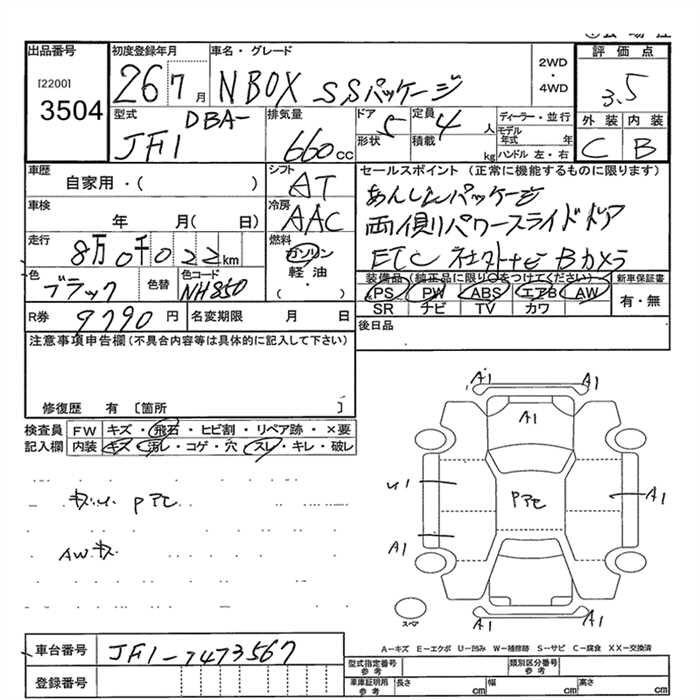 出品番号
[2200]
3504
初度登録年月
26 7 月
車名・グレード
N BOX SSパッケージ
2WD
・
4WD
評価点
3.5
外装 内装
C B
型式
DBA-
JF1
排気量
660 cc
ドア
5
形状
定員
4 人
積載
kg
ディーラー・並行
モデル
年式 年
ハンドル 左・右
車歴
自家用・( )
シフト
AT
車検
年 月( 日)
冷房
AAC
走行
8万0千022km
燃料
ガソリン
軽油
・
( )
色
ブラック
色替
色コード
NH850
R券 9790 円
名変期限 月 日
セールスポイント (正常に機能するものに限ります)
あんしんパッケージ
両側パワースライドドア
ETC 社外ナビ Bカメラ
装備品(純正品に限り○をつけてください)
PS PW ABS エアB AW
SR ナビ TV カワ
新車保証書
有・無
後日品
注意事項申告欄(不具合内容等は具体的に記入して下さい)
修復歴 有 〔箇所 〕
検査員 FW キズ・飛石・ヒビ割・リペア跡・×要
記入欄 内装 キズ・汚レ・コゲ・穴・スレ・キレ・破レ
AWキズ
A1 A1
A1
U1
A1
A1
A1 A1
スペア
A-キズ E-エクボ U-凹み W-補修跡 S-サビ C-腐食 XX-交換済
車台番号 JF1-7473567
登録番号
型式指定番号
参考
類別区分番号
参考
車庫証明用
参考
長さ cm 幅 cm 高さ cm